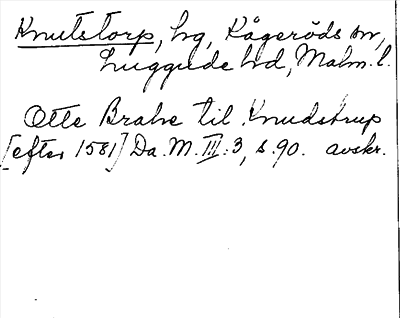 Knutstorp, hg, Kågeröds sn,
Luggude hd, Malm. l.
Otte Brahe til Knudstrup
[efter 1581] Da. M. III:3, s. 90. avskr.